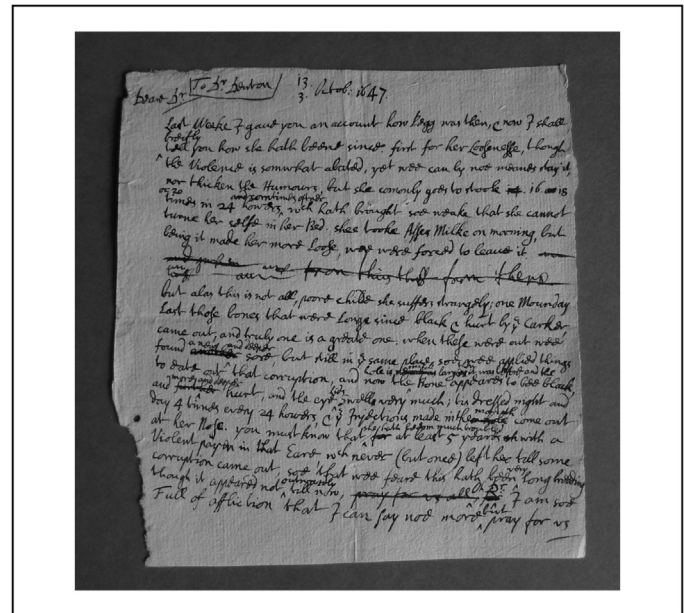 Deare Dr To Dr Denton 13. Octob: 1647.
3.
Last Weeke I gave you an account how Pegg was then, & now I shall
breifly
tell you how she hath beene since first for her Loosenesse, though
the Violence is somwhat abated, yet wee can by noe meanes stay it,
nor thicken the Humours, but she comonly goes to stoole 16 18
or 20 and somtimes oftner
times in 24 howers, wch hath brought soe weake that she cannot
turne her selfe in her Bed. shee tooke Asses Milke on morning, but
being it made her more Loose, wee were forced to leave it
from this
but alas this is not all, poore childe she suffers strangely; one Mounday
Last those bones that were Longe since black & hurt by ye Canker
came out, and truly one is a greate one, when those were out wee
found a new and deeper sore, but still in ye same place, soe wee applied things
hole is larger it was before and the
to date out that corruption, and now the Bone appeares to bee black,
more and deeper
and hurt, and the eye swells very much; tis dressed night and
day 4 times every 24 howers, & ye Injections made in the mouth come out
at her Nose. you must know that for at least 5 yeares she hath seldom much troubled with a
Violent payne in that Eare wch never (but once) left her till some
corruption came out, soe that wee feare this hath been very long breeding
though it appeared not outwardly till now, pray for us all I am soe
Full of affliction that I can say noe more but pray for us